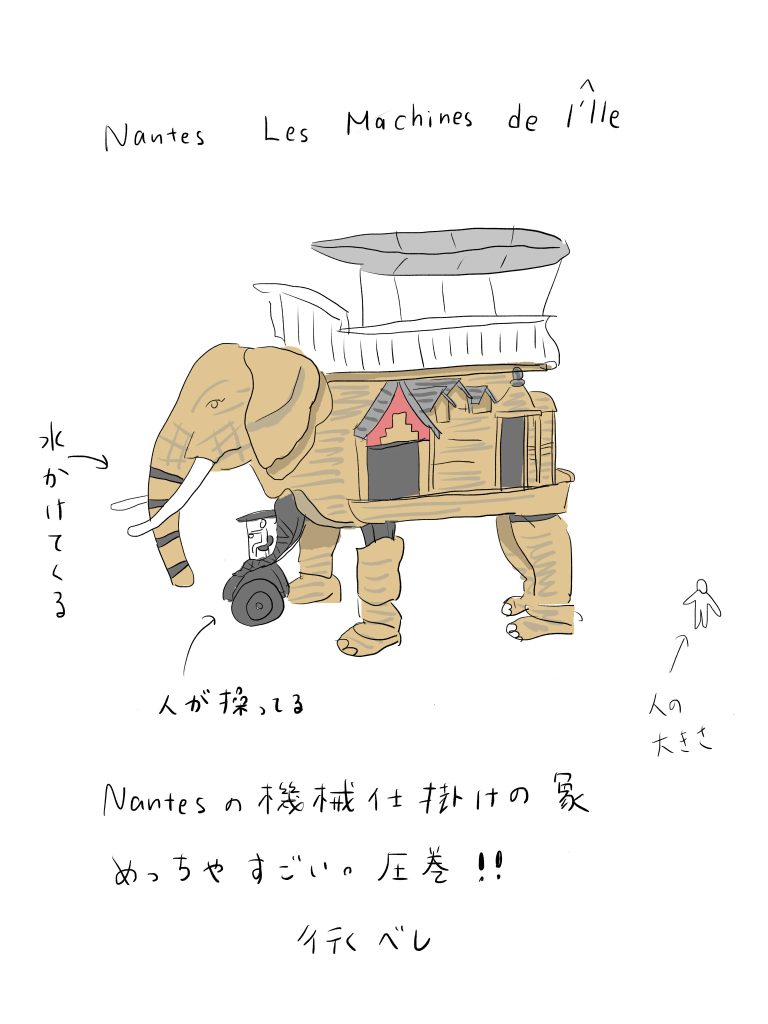 Nantes Les Machines de l'Île
水かけてくる
人が操ってる
人の
大きさ
Nantesの機械仕掛けの象
めっちゃすごい。圧巻!!
行くべし